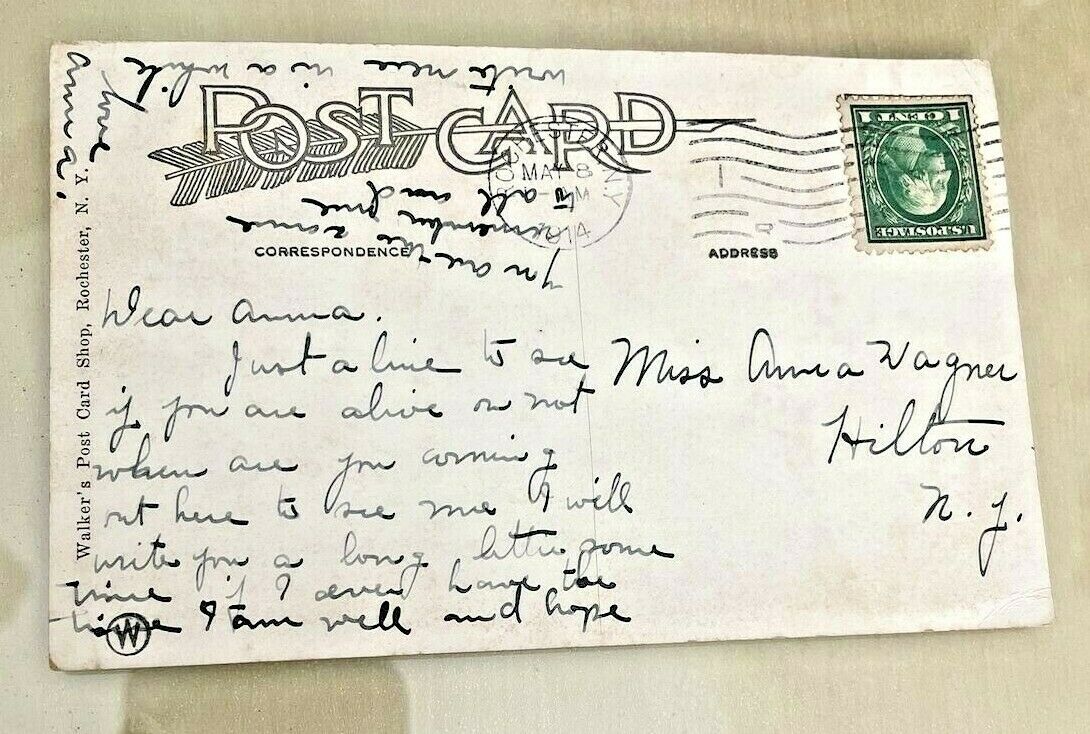 POST CARD
CORRESPONDENCE
ADDRESS
Walker's Post Card Shop, Rochester, N. Y.
MAY 8
1914
N.Y.
U.S. POSTAGE
1 CENT 1
Dear Anna.
Just a line to see
if you are alive or not
when are you coming
out here to see me I will
write you a long letter some
time if I ever have the
time I am well and hope
you are the same
remember me
to all and
write once in a while
from
Anna.
Miss Anna Wagner
Hilton
N. Y.
W